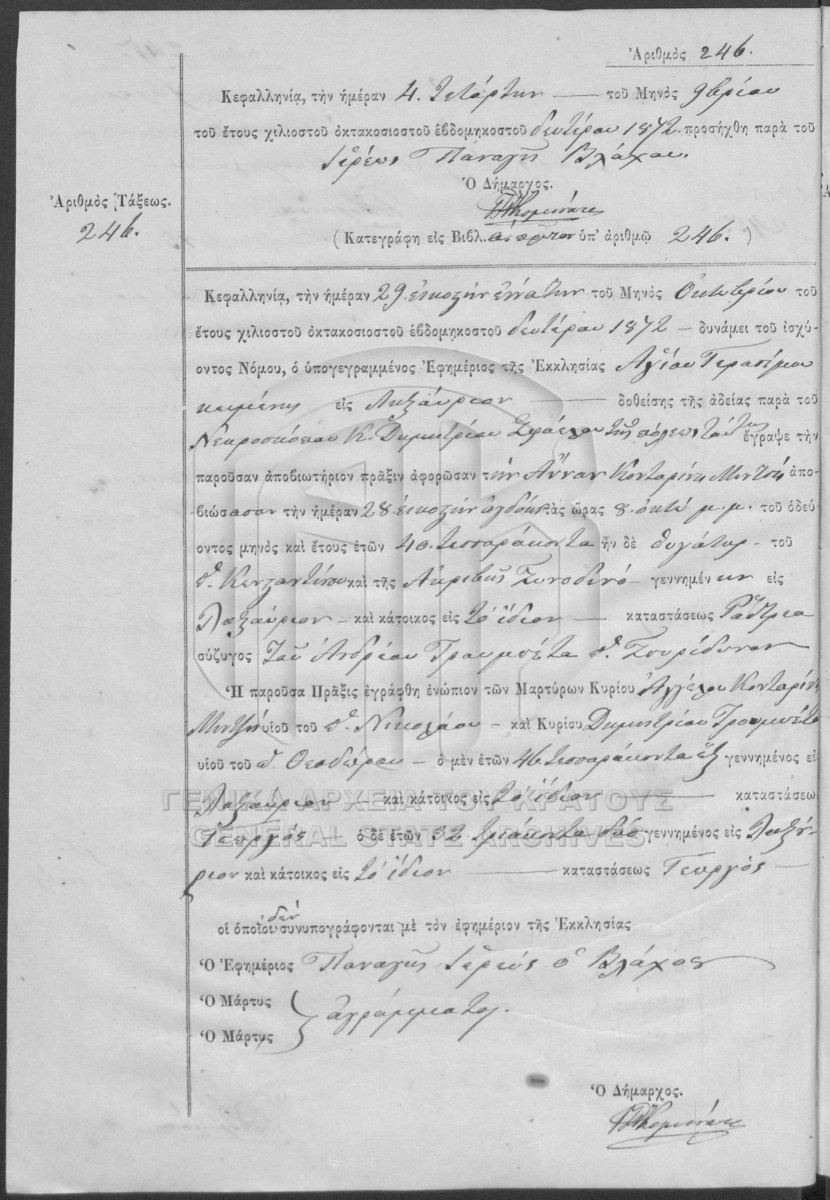 Ἀριθμὸς 246.
Κεφαλληνίᾳ, τὴν ἡμέραν 4. τετάρτην — τοῦ Μηνὸς 9βρίου
τοῦ ἔτους χιλιοστοῦ ὀκτακοσιοστοῦ ἑβδομηκοστοῦ δευτέρου 1872. προσήχθη παρὰ τοῦ
Ἱερέως Παναγῆ Βλάχου.
Ὁ Δήμαρχος.
Ἀριθμὸς Τάξεως.
246.
( Κατεγράφη εἰς Βιβλ. πρῶτον ὑπ' ἀριθμῷ 246. )
Κεφαλληνίᾳ, τὴν ἡμέραν 29. εἰκοστὴν ἐννάτην τοῦ Μηνὸς Ὀκτωβρίου τοῦ
ἔτους χιλιοστοῦ ὀκτακοσιοστοῦ ἑβδομηκοστοῦ δευτέρου 1872 — δυνάμει τοῦ ἰσχύ-
οντος Νόμου, ὁ ὑπογεγραμμένος Ἐφημέριος τῆς Ἐκκλησίας Ἁγίου Γερασίμου
κειμένης εἰς Ληξούριον — δοθείσης τῆς ἀδείας παρὰ τοῦ
Νεκροσκόπου Κ. Δημητρίου τῆς πόλεως ταύτης ἔγραψε τὴν
παροῦσαν ἀποβιωτήριον πρᾶξιν ἀφορῶσαν τὴν Ἄνναν Κονταρίνη Μιντζῆ ἀπο-
βιώσασαν τὴν ἡμέραν 28 εἰκοστὴν ὀγδόην τὰς ὥρας 8. ὀκτώ μ.μ. τοῦ ὁδεύ-
οντος μηνὸς καὶ ἔτους ἐτῶν 40. τεσσαράκοντα ἦν δὲ θυγάτηρ — τοῦ
π. Κωνσταντίνου καὶ τῆς Ἀκριβῆς — γεννημένην εἰς
Ληξούριον — καὶ κάτοικος εἰς τὸ ἴδιον — καταστάσεως Ράπτρια
σύζυγος τοῦ Ἀνδρέου Τρουμπέτα π. Σπυρίδωνος
Ἡ παροῦσα Πρᾶξις ἐγράφθη ἐνώπιον τῶν Μαρτύρων Κυρίου Ἀγγέλου Κονταρίνη
Μιντζῆ υἱοῦ τοῦ π. Νικολάου — καὶ Κυρίου Δημητρίου Τρουμπέτα
υἱοῦ τοῦ π. Θεοδώρου — ὁ μὲν ἐτῶν 46 τεσσαράκοντα ἓξ γεννημένος εἰς
Ληξούριον — καὶ κάτοικος εἰς τὸ ἴδιον — καταστάσεως
Γεωργός — ὁ δὲ ἐτῶν 32 τριάκοντα δύο γεννημένος εἰς Ληξού-
ριον καὶ κάτοικος εἰς τὸ ἴδιον — καταστάσεως Γεωργός —
οἱ ὁποῖοι δὲν συνυπογράφονται μὲ τὸν ἐφημέριον τῆς Ἐκκλησίας
Ὁ Ἐφημέριος Παναγῆς Ἱερεύς ὁ Βλάχος
Ὁ Μάρτυς
ἀγράμματοι.
Ὁ Μάρτυς
Ὁ Δήμαρχος.
ΓΕΝΙΚΑ ΑΡΧΕΙΑ ΤΟΥ ΚΡΑΤΟΥΣ
GENERAL STATE ARCHIVES